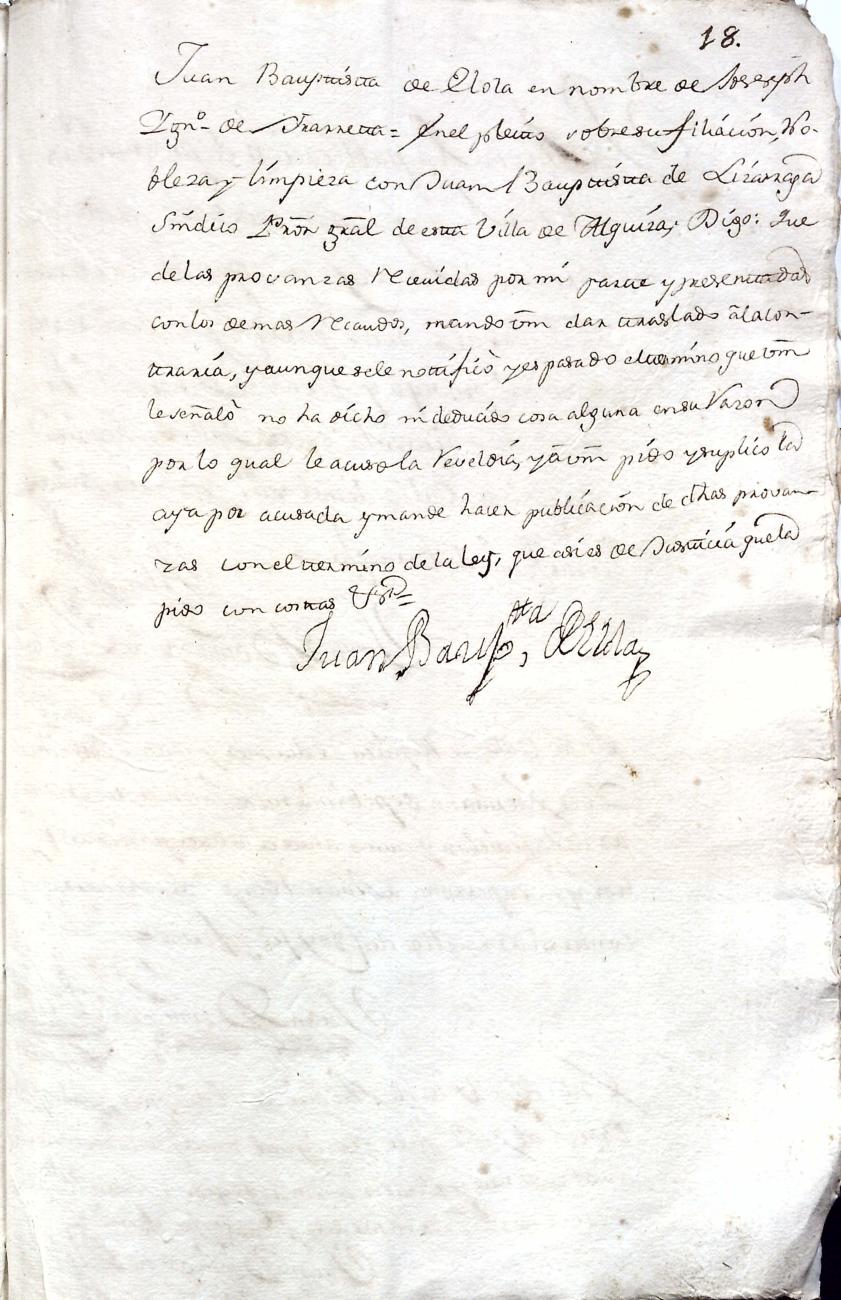 18.
Juan Bauptista de Elola en nombre de Joseph
Ygnº. de Yrarreta= En el pleito sobre su filiación, No-
bleza y limpieza con Juan Bauptista de Lizarraga
Síndico Prōn grāl de esta Villa de Alquiza; Digo: Que
de las provanzas Recividas por mi parte y presentadas
con los demas Recaudos, mando vm̄ dar traslado a la con-
traria, y aunque se le notificò y es pasado el termino que vm̄
le señalò no ha dicho ni deducido cosa alguna en su Razon
por lo qual le acuso la Reveldía, y a vm̄ pido y suplico la
aya por acusada y mande hacer publicación de dhas provan-
zas con el termino de la ley, que asi es de Justicia que la
pido con costas &ª=
Juan Baupᵗᵗᵃ, de Elola